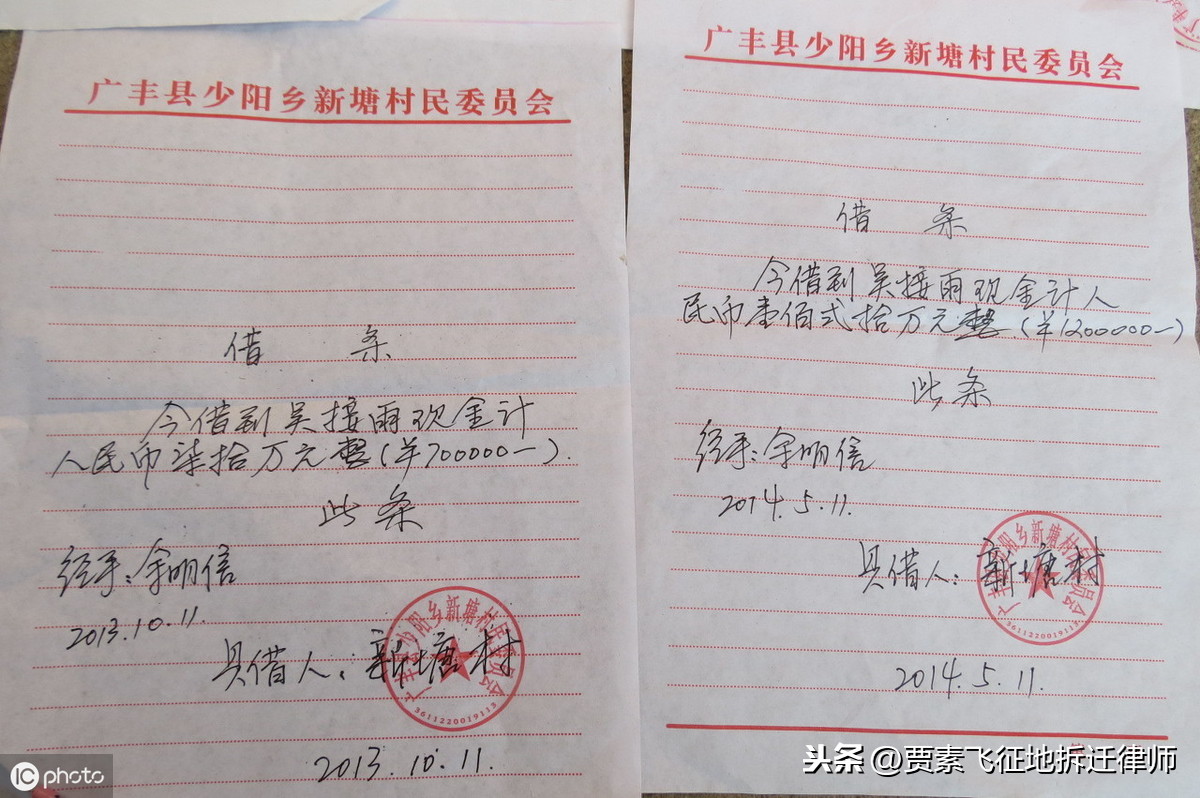 广丰县少阳乡新塘村民委员会
借 条
今借到吴接雨现金计
人民币柒拾万元整(羊700000—).
此条
经手:余明信
2013.10.11.
具借人:新塘村
广丰县少阳乡新塘村民委员会
3611220019113
2013.10.11.
广丰县少阳乡新塘村民委员会
借 条
今借到吴接雨现金计人
民币壹佰弍拾万元整(羊1200000—)
此条
经手:余明信
2014.5.11.
具借人:新塘村
广丰县少阳乡新塘村民委员会
3611220019113
2014.5.11.
IC photo
头条@贾素飞征地拆迁律师